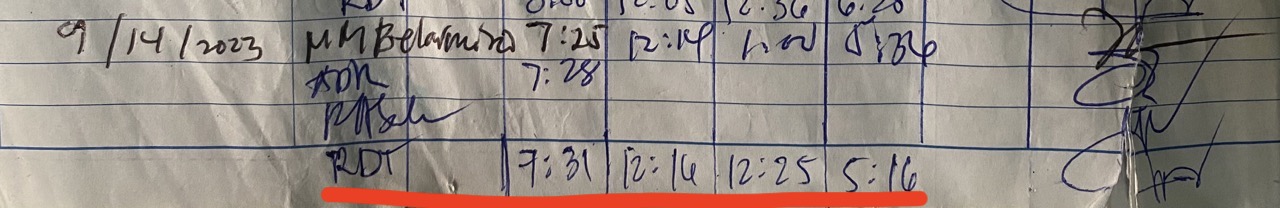 12:05 12:36 6:20
9/14/2023 MMBelarmino 7:25 12:14 1:00 5:36
ADR 7:28
RDT 7:31 12:16 12:25 5:16